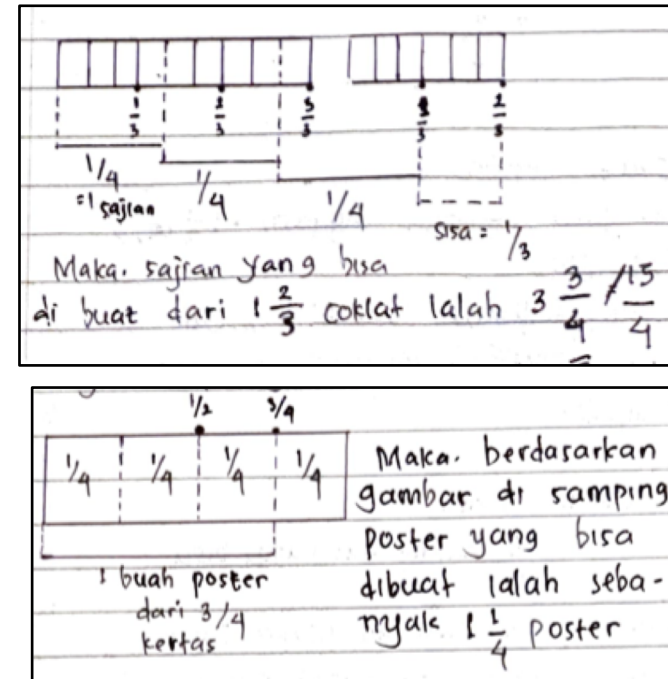 1/3 2/3 3/3 1/3 2/3
1/4 1/4 1/4
=1 sajian
sisa = 1/3
Maka. sajian yang bisa
di buat dari 1 2/3 coklat Ialah 3 3/4 / 15/4
1/2 3/4
1/4 1/4 1/4 1/4
1 buah poster
dari 3/4
kertas
Maka. berdasarkan
gambar di samping
poster yang bisa
dibuat ialah seba-
nyak 1 1/4 poster